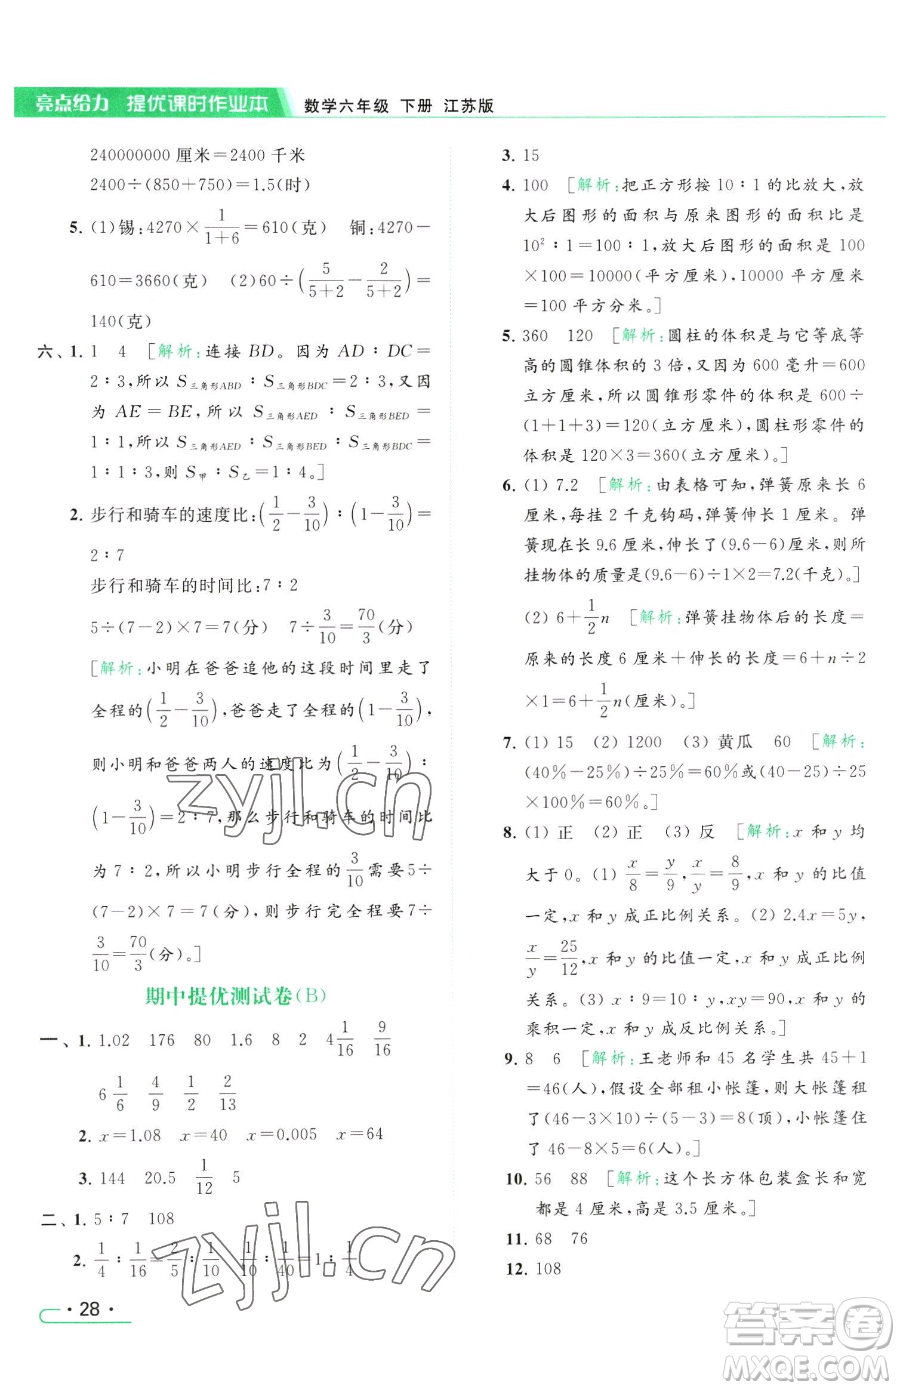 亮点给力 提优课时作业本 数学六年级 下册 江苏版
240000000 厘米＝2400 千米
2400÷(850＋750)＝1.5(时)
5. (1)锡:4270×1/(1＋6)＝610(克) 铜:4270－
610＝3660(克) (2)60÷(5/(5＋2)－2/(5＋2))＝
140(克)
六、1. 1 4 [解析:连接 BD。因为 AD∶DC＝
2∶3,所以 S三角形ABD∶S三角形BDC＝2∶3,又因
为 AE＝BE,所以 S三角形AED∶S三角形BED＝
1∶1,所以 S三角形AED∶S三角形BED∶S三角形BDC＝
1∶1∶3,则 S甲∶S乙＝1∶4。]
2. 步行和骑车的速度比:(1/2－3/10)∶(1－3/10)＝
2∶7
步行和骑车的时间比:7∶2
5÷(7－2)×7＝7(分) 7÷3/10＝70/3(分)
[解析:小明在爸爸追他的这段时间里走了
全程的(1/2－3/10),爸爸走了全程的(1－3/10),
则小明和爸爸两人的速度比为(1/2－3/10)∶
(1－3/10)＝2∶7,那么步行和骑车的时间比
为 7∶2,所以小明步行全程的3/10需要 5÷
(7－2)×7＝7(分),则步行完全程要 7÷
3/10＝70/3(分)。]
期中提优测试卷(B)
一、1. 1.02 176 80 1.6 8 2 4 1/16 9/16
6 1/6 4/9 1/2 2/13
2. x＝1.08 x＝40 x＝0.005 x＝64
3. 144 20.5 1/12 5
二、1. 5∶7 108
2. 1/4∶1/16＝2/5∶1/10 1/10∶1/40＝1∶1/4
·28·
3. 15
4. 100 [解析:把正方形按 10∶1 的比放大,放
大后图形的面积与原来图形的面积比是
10²∶1＝100∶1,放大后图形的面积是 100
×100＝10000(平方厘米),10000 平方厘米
＝100 平方分米。]
5. 360 120 [解析:圆柱的体积是与它等底等
高的圆锥体积的 3 倍,又因为 600 毫升＝600
立方厘米,所以圆锥形零件的体积是 600÷
(1＋1＋3)＝120(立方厘米),圆柱形零件的
体积是 120×3＝360(立方厘米)。]
6. (1) 7.2 [解析:由表格可知,弹簧原来长 6
厘米,每挂 2 千克钩码,弹簧伸长 1 厘米。弹
簧现在长 9.6 厘米,伸长了(9.6－6)厘米,则所
挂物体的质量是(9.6－6)÷1×2＝7.2(千克)。]
(2) 6＋1/2n [解析:弹簧挂物体后的长度＝
原来的长度 6 厘米＋伸长的长度＝6＋n÷2
×1＝6＋1/2n(厘米)。]
7. (1) 15 (2) 1200 (3) 黄瓜 60 [解析:
(40％－25％)÷25％＝60％或(40－25)÷25
×100％＝60％。]
8. (1) 正 (2) 正 (3) 反 [解析:x 和 y 均
大于 0。(1) x/8＝y/9,x/y＝8/9,x 和 y 的比值
一定,x 和 y 成正比例关系。(2) 2.4x＝5y,
x/y＝25/12,x 和 y 的比值一定,x 和 y 成正比例
关系。(3) x∶9＝4∶y,xy＝36,x 和 y 的
乘积一定,x 和 y 成反比例关系。]
9. 8 6 [解析:王老师和 45 名学生共 45＋1
＝46(人),假设全部租小帐篷,则大帐篷租
了(46－3×10)÷(5－3)＝8(顶),小帐篷住
了 46－8×5＝6(人)。]
10. 56 88 [解析:这个长方体包装盒长和宽
都是 28 厘米,高是 3.5 厘米。]
11. 68 76
12. 108
zyjl.cn
zyjl.cn
答案圈
MXQE.COM